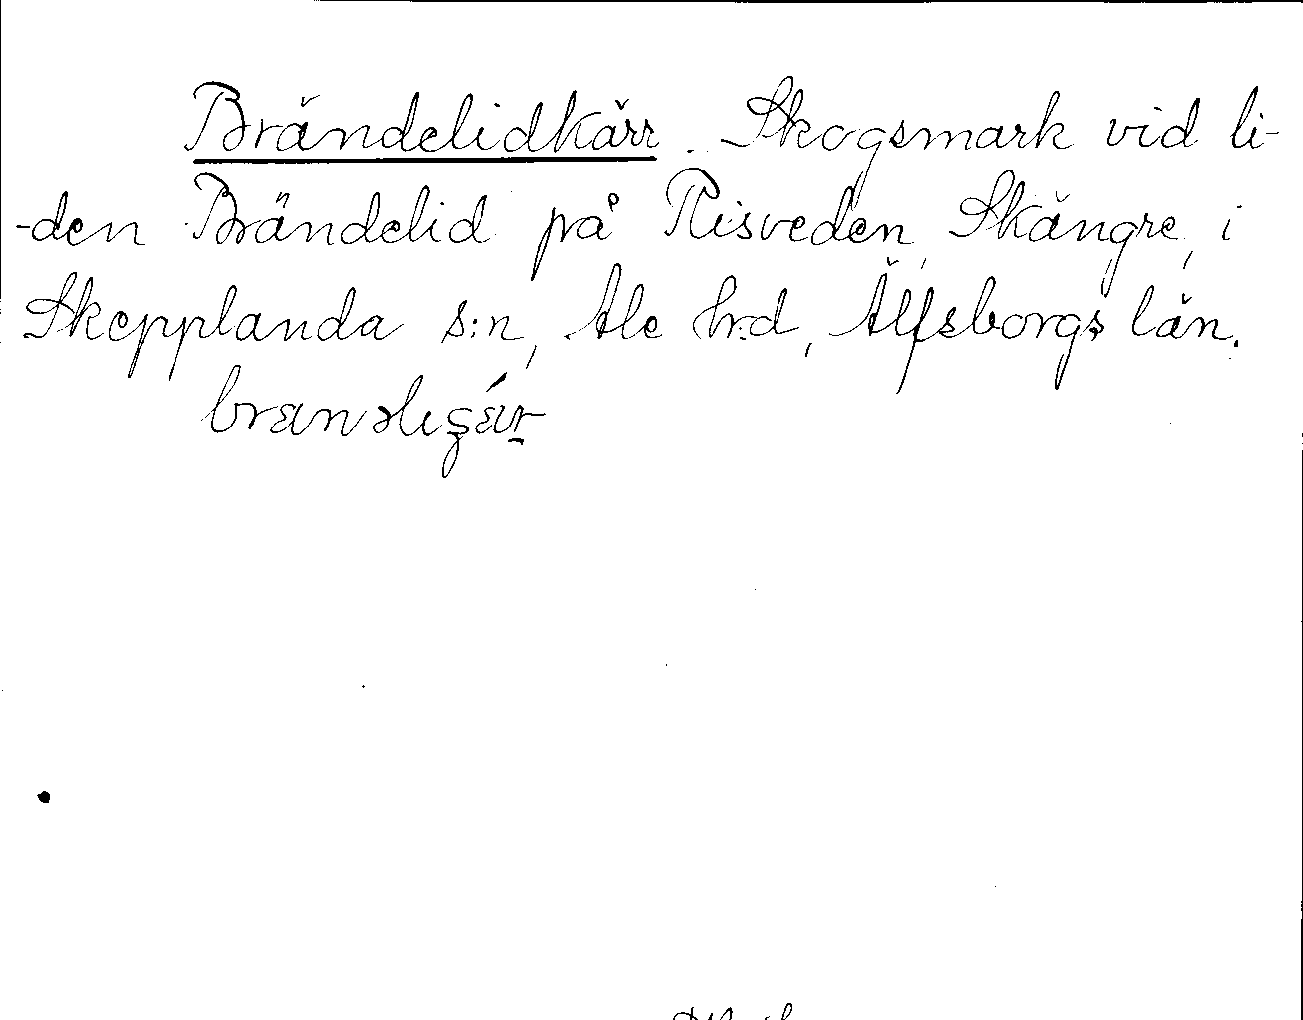 Brändelidkärr. Skogsmark vid li-
-den Brändelid på Risveden, Skångre, i
Skepplanda s:n, Ale hrd, Älfsborgs län.